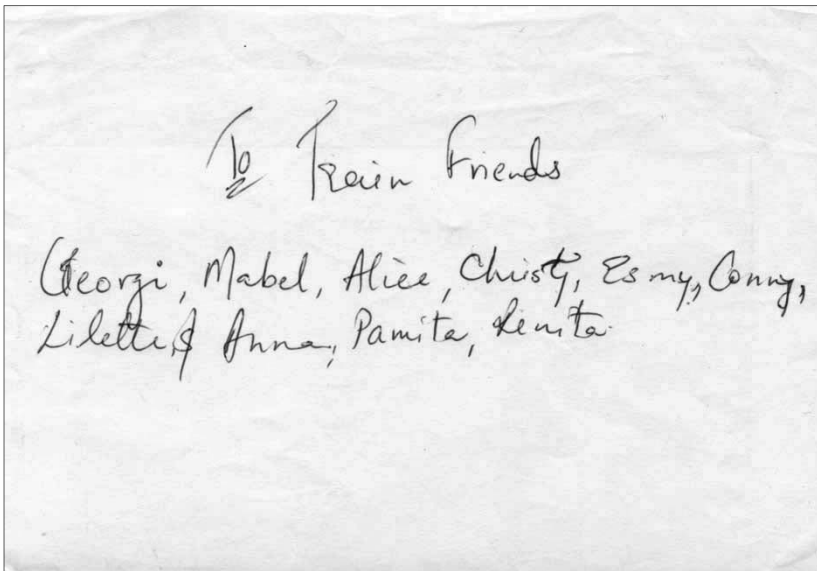 To Train Friends
Georgi, Mabel, Alice, Christy, Esmy, Conny,
Lilette, & Anna, Pamita, Renita